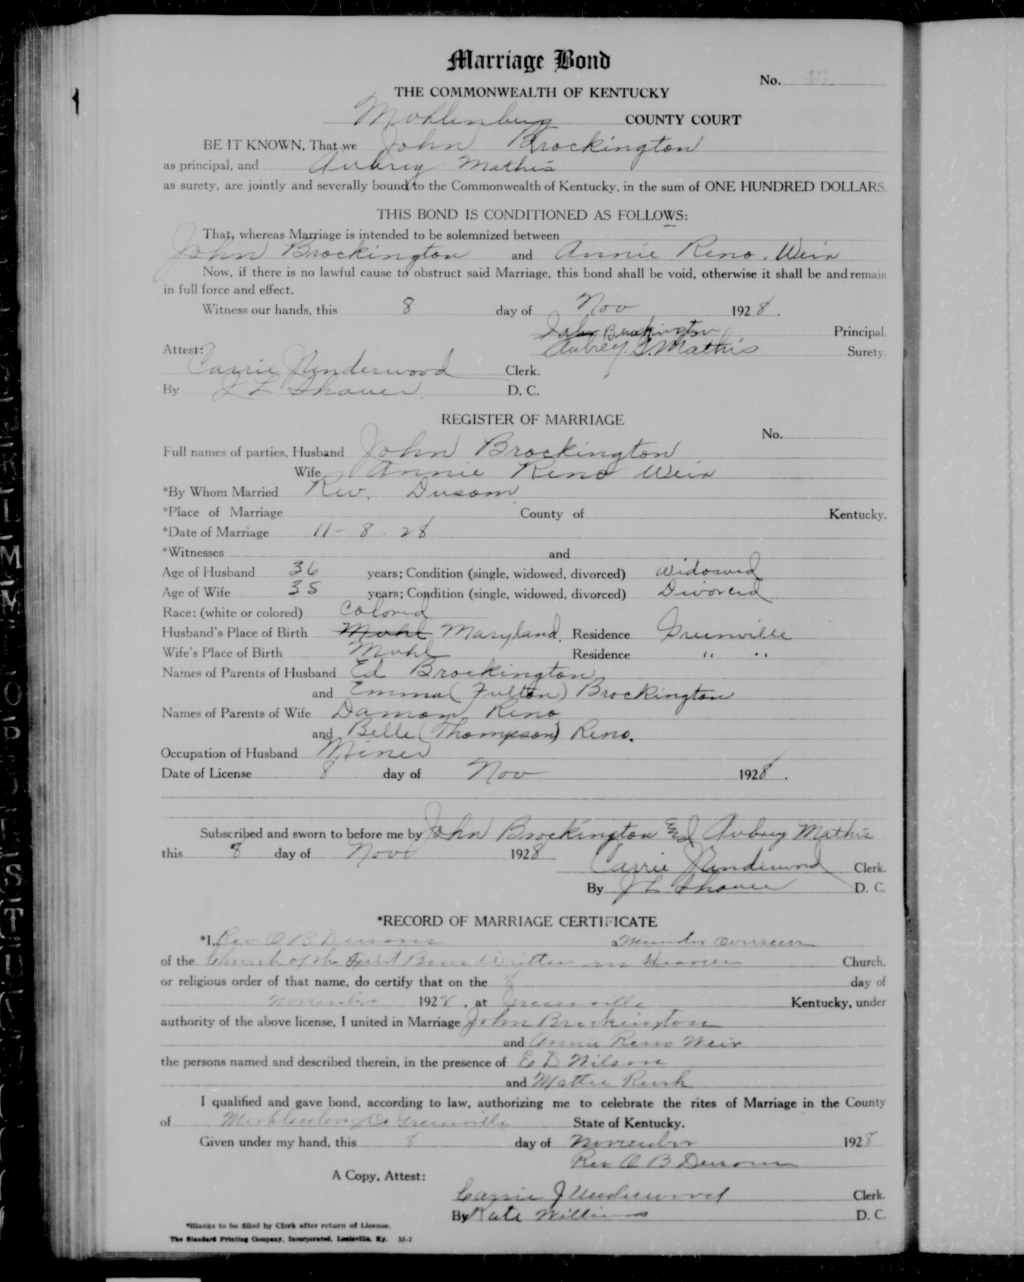 Marriage Bond
No. 43
THE COMMONWEALTH OF KENTUCKY
Muhlenberg COUNTY COURT
BE IT KNOWN, That we John Brockington
as principal, and Aubrey Mathis
as surety, are jointly and severally bound to the Commonwealth of Kentucky, in the sum of ONE HUNDRED DOLLARS.
THIS BOND IS CONDITIONED AS FOLLOWS:
That, whereas Marriage is intended to be solemnized between
John Brockington and Annie Reno. Weir
Now, if there is no lawful cause to obstruct said Marriage, this bond shall be void, otherwise it shall be and remain
in full force and effect.
Witness our hands, this 8 day of Nov 1928.
John Brockington Principal.
Aubrey Mathis Surety.
Attest:
Carrie J Underwood Clerk.
By J L Shaver D. C.
REGISTER OF MARRIAGE
No.
Full names of parties, Husband John Brockington
Wife Annie Reno Weir
*By Whom Married Rev. Dusom
*Place of Marriage County of Kentucky.
*Date of Marriage 11-8-28
*Witnesses and
Age of Husband 36 years; Condition (single, widowed, divorced) Widowed
Age of Wife 35 years; Condition (single, widowed, divorced) Divorced
Race: (white or colored) Colored
Husband's Place of Birth Muhl Maryland. Residence Greenville
Wife's Place of Birth Muhl Residence " "
Names of Parents of Husband Ed Brockington
and Emma (Fulton) Brockington
Names of Parents of Wife Damon Reno
and Belle (Thompson) Reno.
Occupation of Husband Miner
Date of License 8 day of Nov 1928.
Subscribed and sworn to before me by John Brockington and Aubrey Mathis
this 8 day of Nov 1928
Carrie J Underwood Clerk.
By J L Shaver D. C.
*RECORD OF MARRIAGE CERTIFICATE
*I, Rev O B Dusom a
of the Church of the First Born Written in Heaven Church.
or religious order of that name, do certify that on the 8 day of
November 1928, at Greenville Kentucky, under
authority of the above license, I united in Marriage John Brockington
and Annie Reno Weir
the persons named and described therein, in the presence of E D Wilson
and Mattie Rush
I qualified and gave bond, according to law, authorizing me to celebrate the rites of Marriage in the County
of Muhlenberg Co Greenville State of Kentucky.
Given under my hand, this 8 day of November 1928
Rev O B Dusom
A Copy, Attest:
Carrie J Underwood Clerk.
By Kate Williams D. C.
*Blanks to be filled by Clerk after return of License.
The Standard Printing Company, Incorporated, Louisville, Ky. M-2